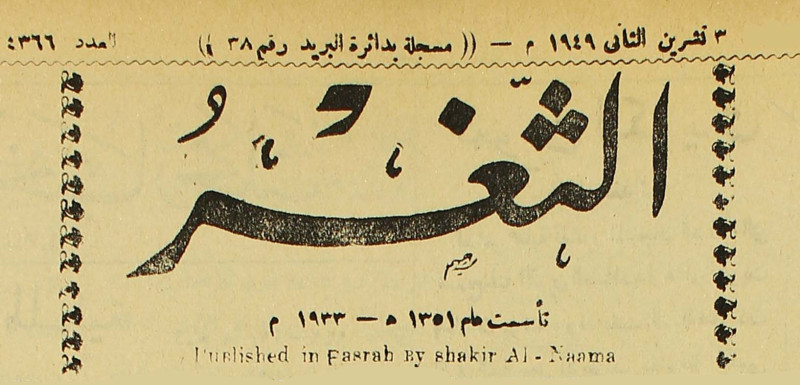 ٣ تشرين الثاني ١٩٤٩ م — (( مسجلة بدائرة البريد رقم ٣٨ )) العدد ٤٣٦٦
الثَّغْر
رحيم
تأسست عام ١٣٥١ ه — ١٩٣٣ م
Published in Basrah By shakir Al-Naama